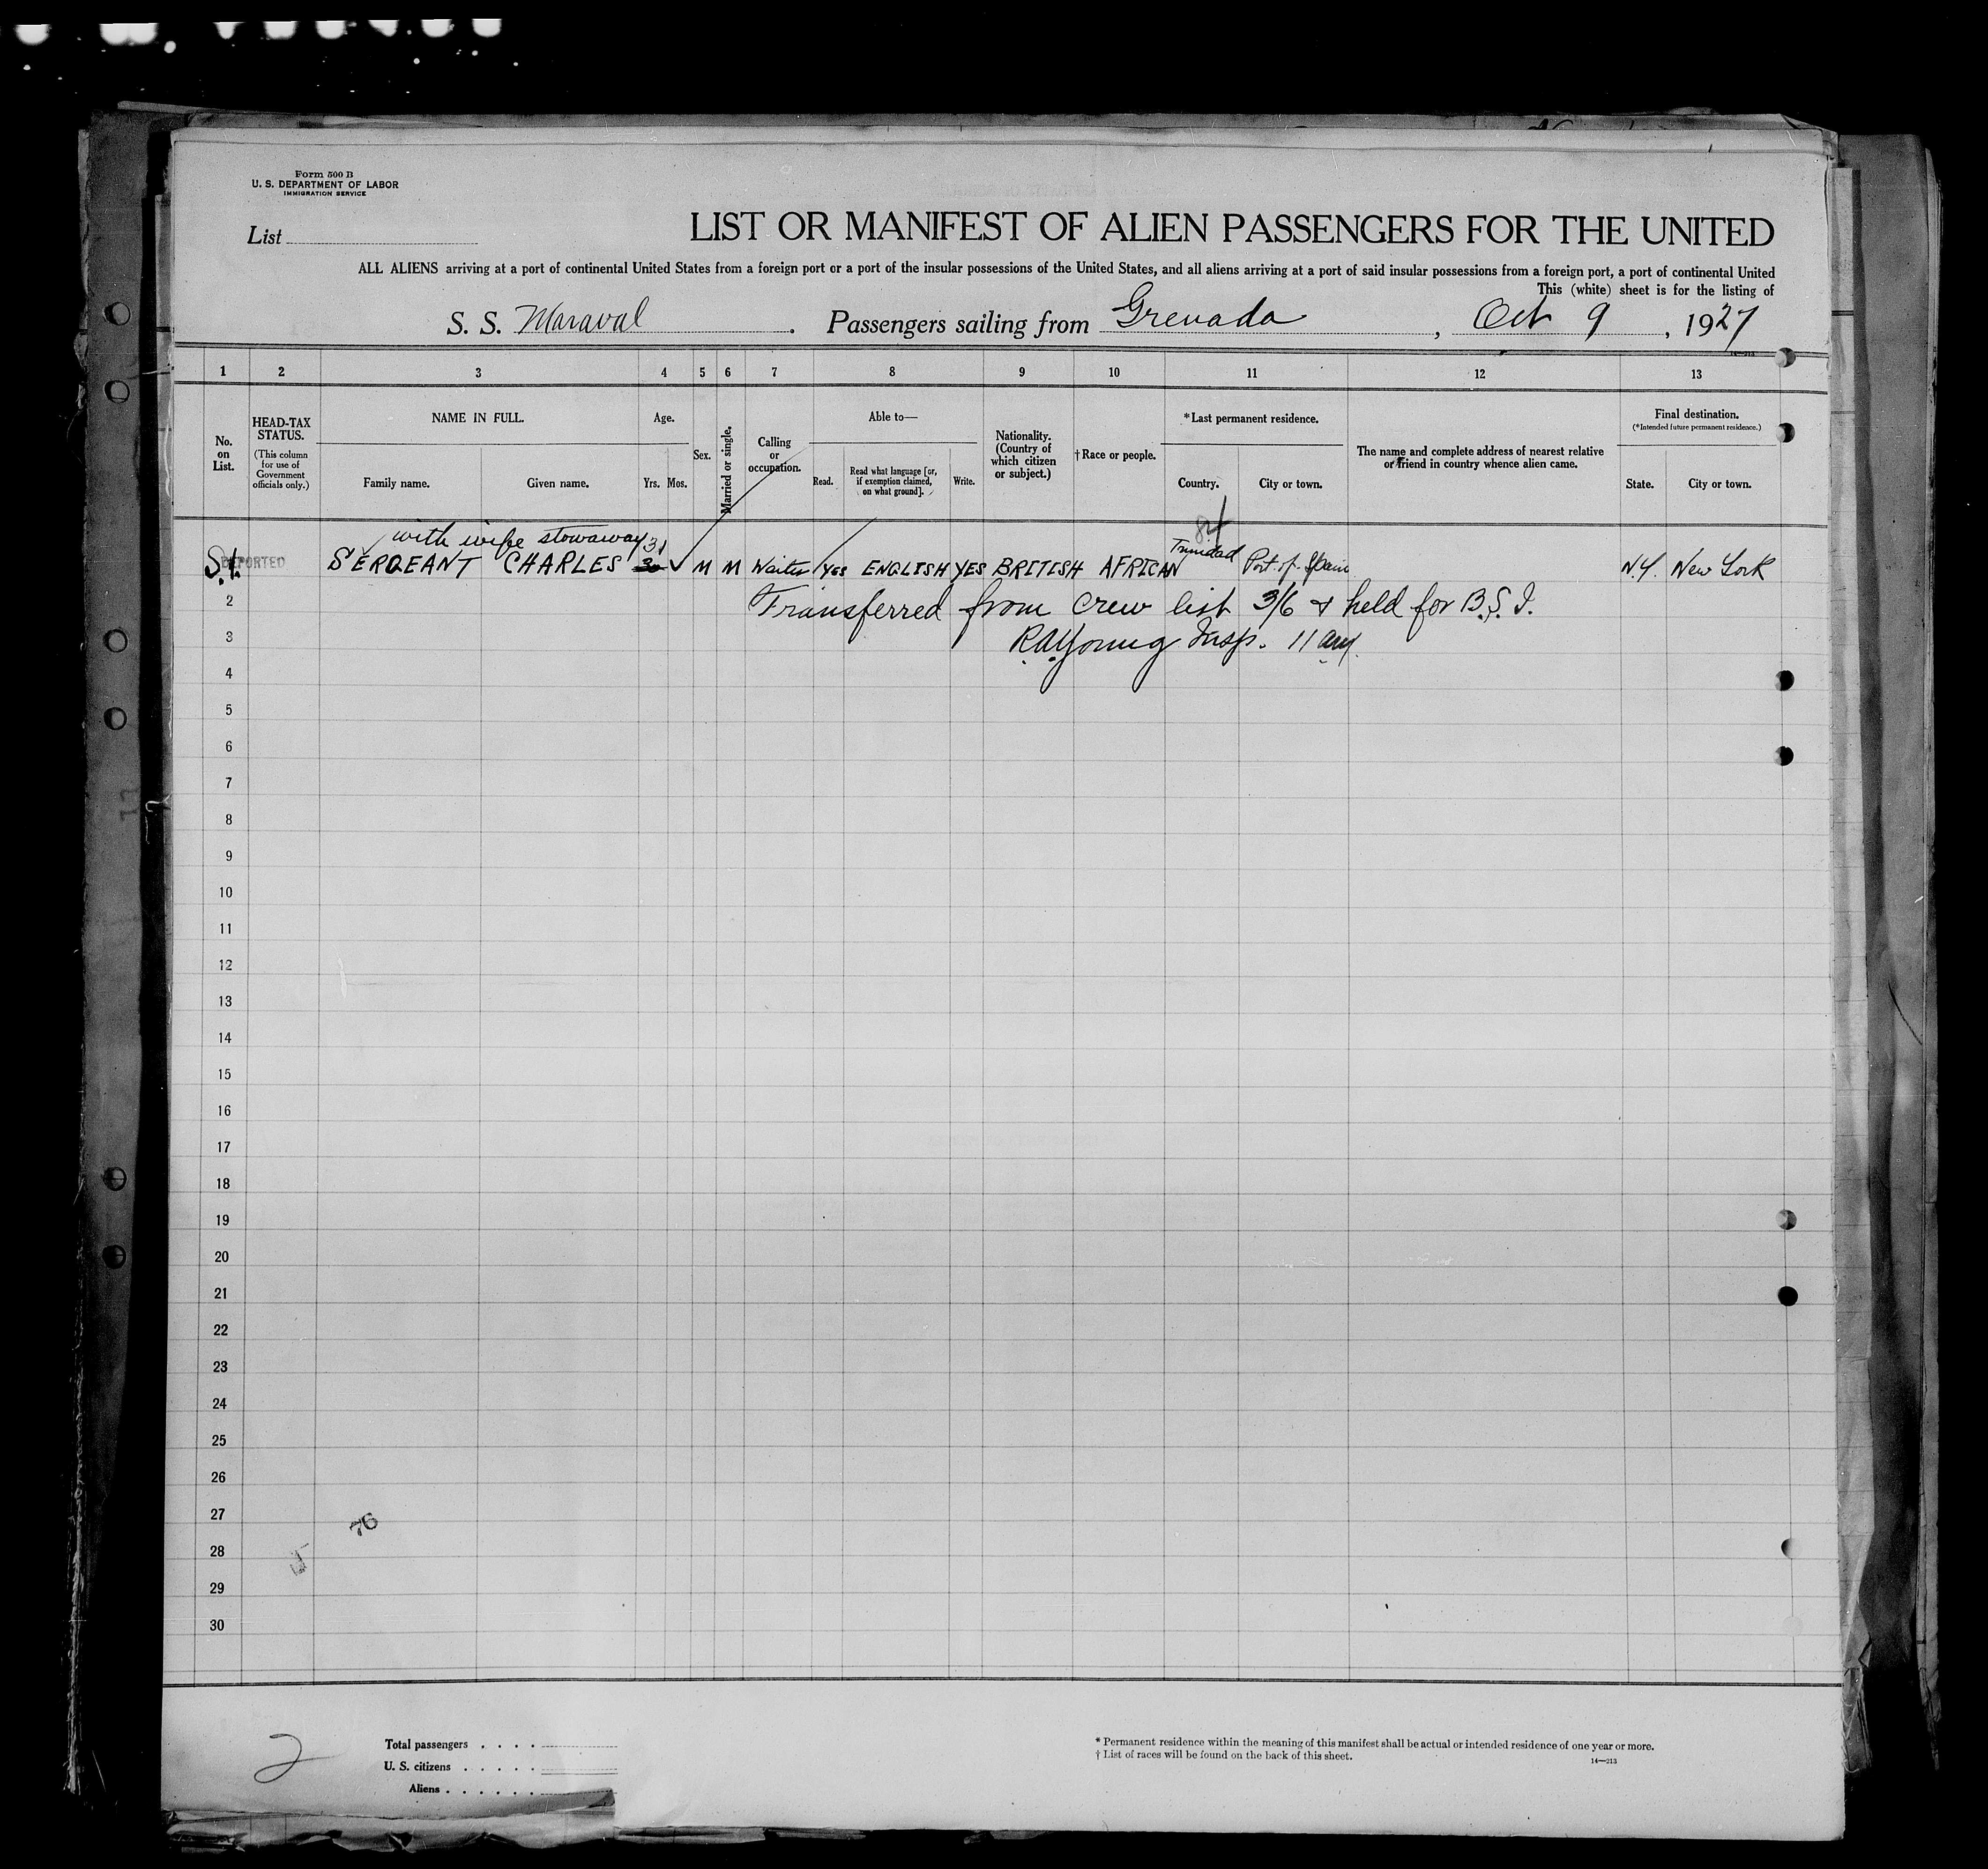 Form 500 B
U. S. DEPARTMENT OF LABOR
IMMIGRATION SERVICE
List
LIST OR MANIFEST OF ALIEN PASSENGERS FOR THE UNITED
ALL ALIENS arriving at a port of continental United States from a foreign port or a port of the insular possessions of the United States, and all aliens arriving at a port of said insular possessions from a foreign port, a port of continental United
This (white) sheet is for the listing of
S. S. Maraval . Passengers sailing from Grenada , Oct 9 , 1927
14—213
1 2 3 4 5 6 7 8 9 10 11 12 13
No. on List.
HEAD-TAX STATUS.
(This column for use of Government officials only.)
NAME IN FULL.
Family name. Given name.
Age.
Yrs. Mos.
Sex.
Married or single.
Calling or occupation.
Able to—
Read. Read what language [or, if exemption claimed, on what ground]. Write.
Nationality. (Country of which citizen or subject.)
†Race or people.
*Last permanent residence.
Country. City or town.
The name and complete address of nearest relative or friend in country whence alien came.
Final destination.
(*Intended future permanent residence.)
State. City or town.
with wife stowaway 31
S.I. DEPORTED SERGEANT CHARLES 30 ✓ M M Waiter YES ENGLISH YES BRITISH AFRICAN Trinidad Port of Spain N.Y. New York
2 Transferred from crew list 3/6 & held for B.S.I.
3 R.A. Young Insp. 11 am.
4
5
6
7
8
9
10
11
12
13
14
15
16
17
18
19
20
21
22
23
24
25
26
27
76
28
29
30
2
Total passengers . . . .
U. S. citizens . . . . .
Aliens . . . . . .
* Permanent residence within the meaning of this manifest shall be actual or intended residence of one year or more.
† List of races will be found on the back of this sheet.
14—213